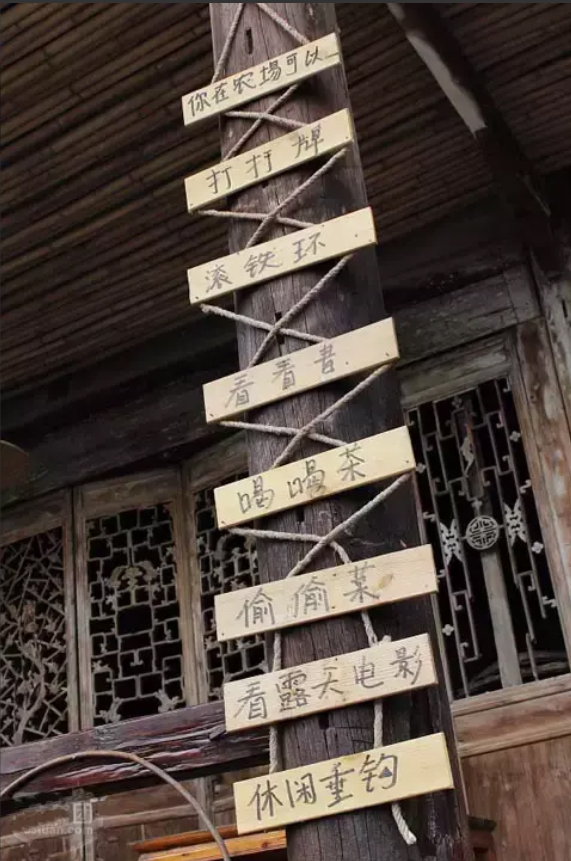 你在农場可以…
打打牌
滚铁环
看看書
喝喝茶
偷偷菜
看露天电影
休闲垂钓
团